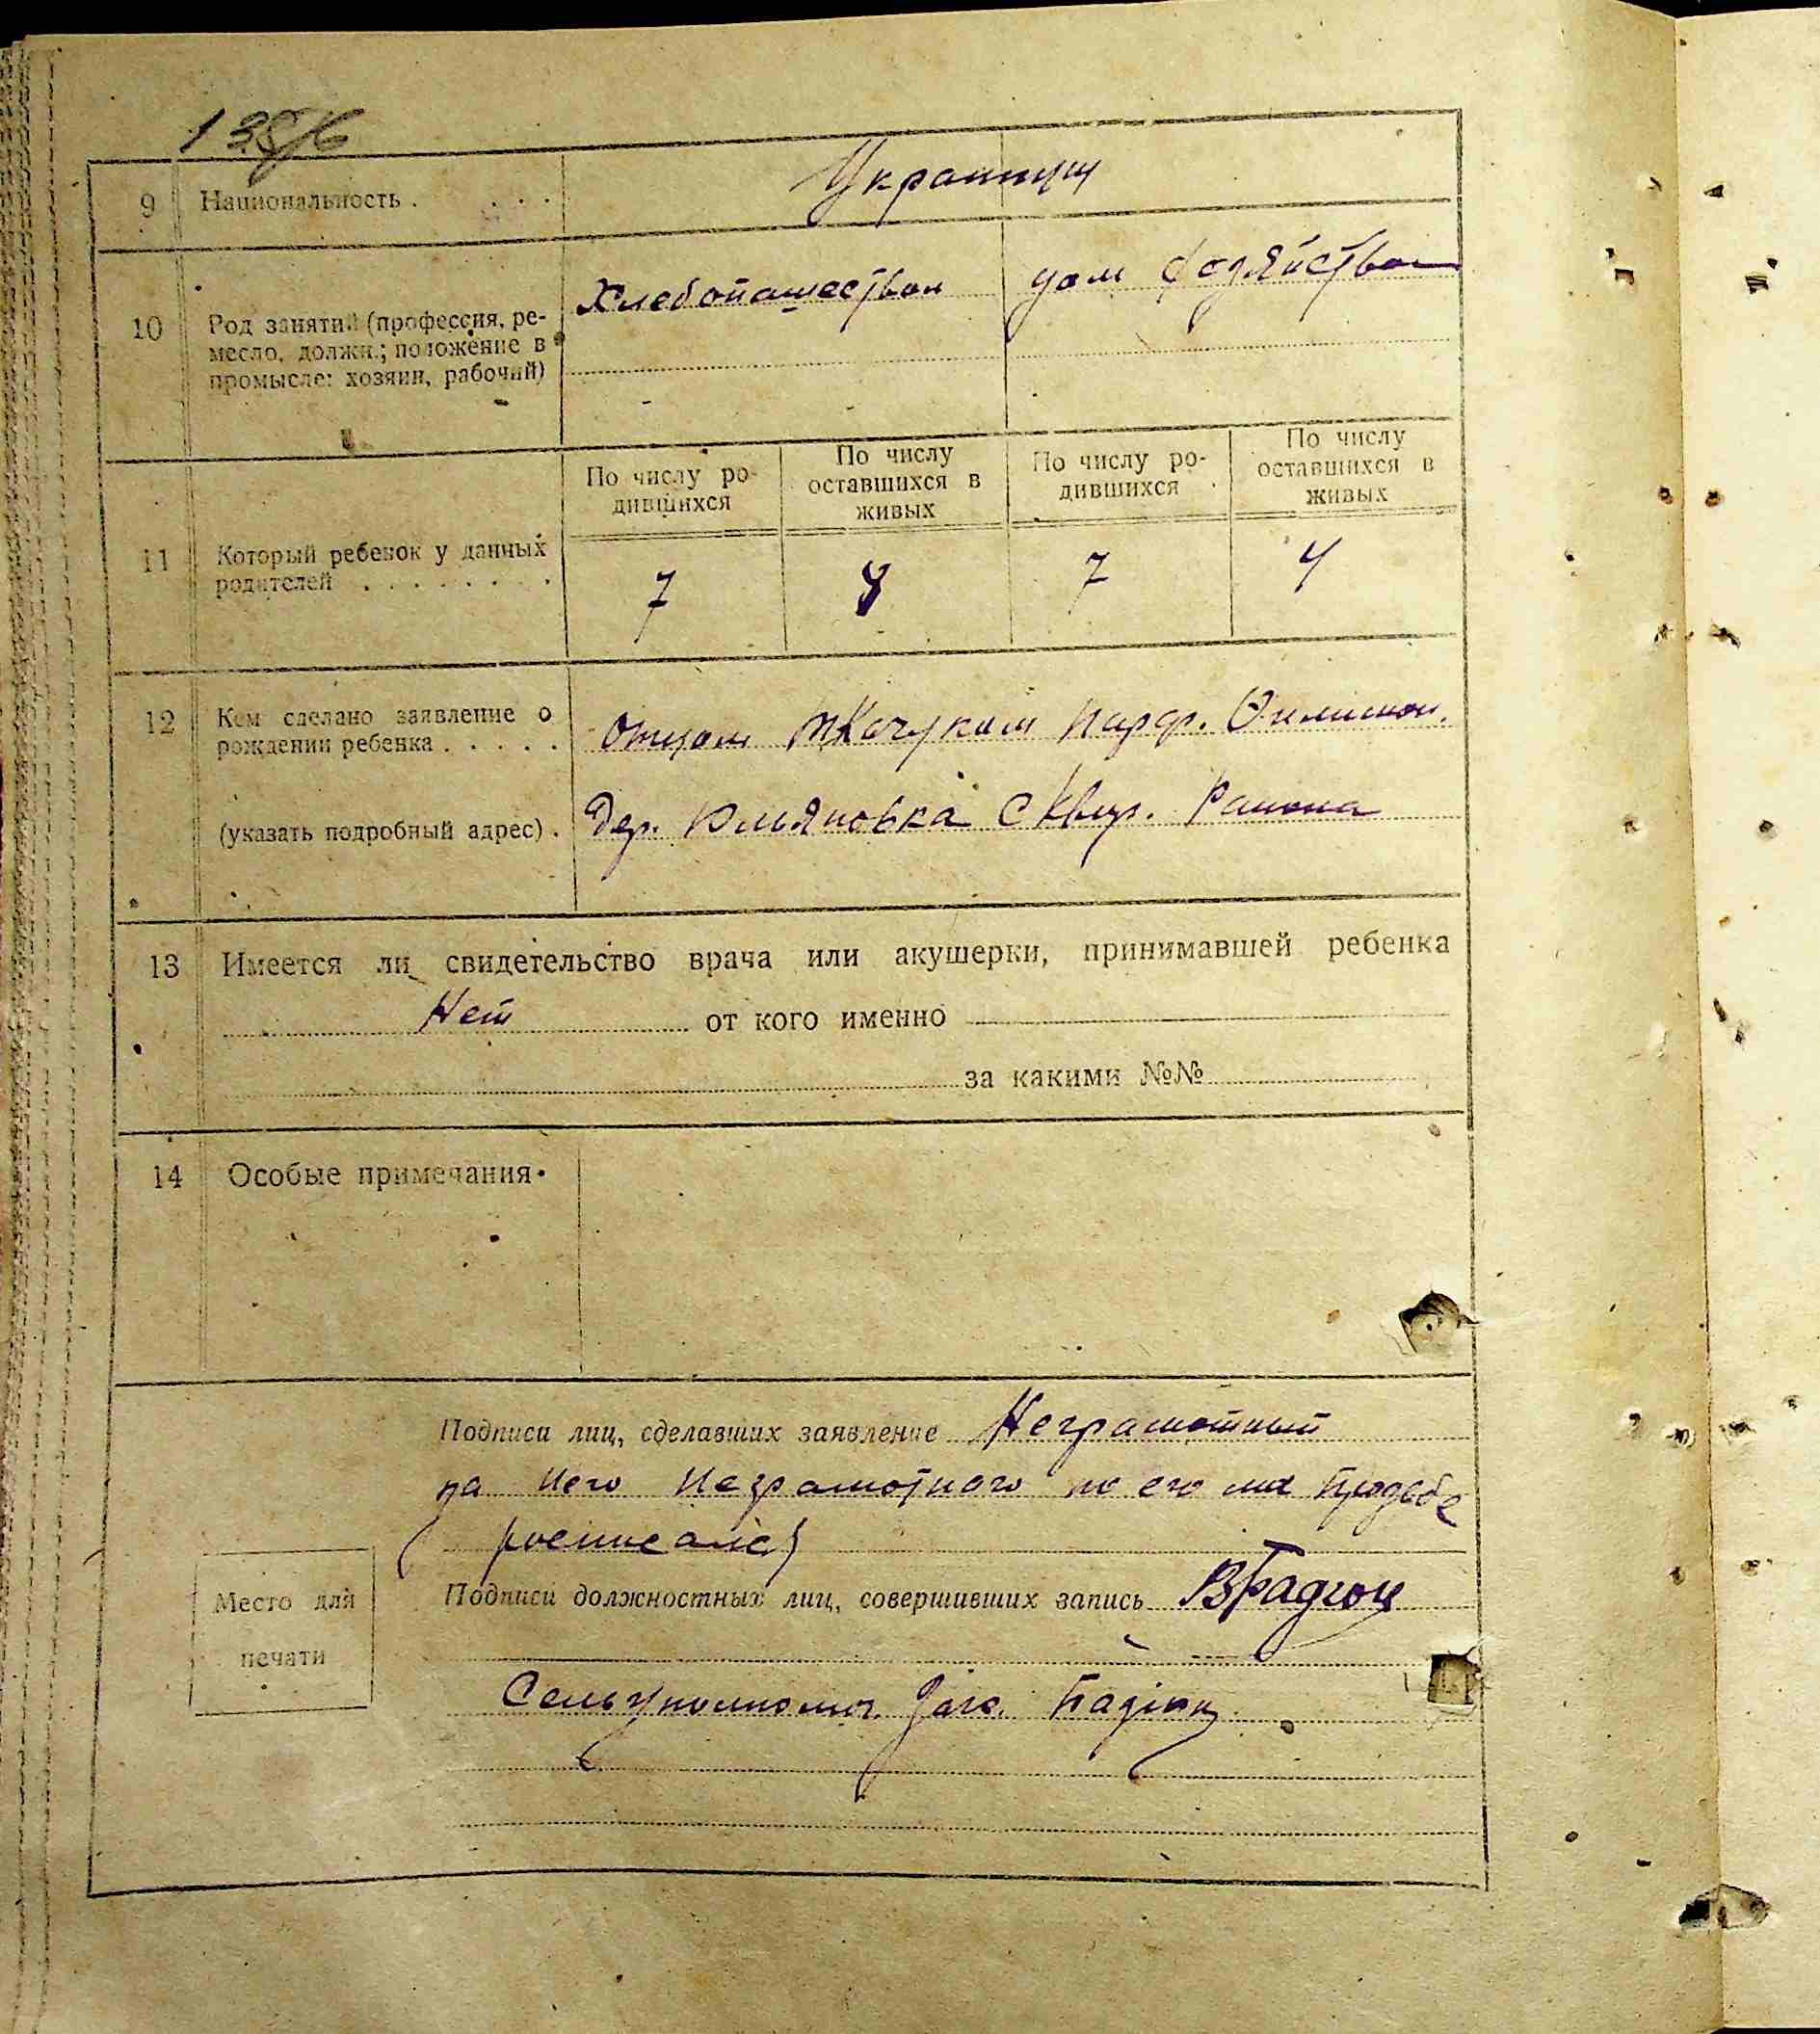 9 Национальность . . . . Украинцы
10 Род занятий (профессия, ре-
месло, должн.; положение в
промысле: хозяин, рабочий)
Хлебопашеством дом хозяйством
По числу ро-
дившихся
По числу
оставшихся в
живых
По числу ро-
дившихся
По числу
оставшихся в
живых
11 Который ребенок у данных
родителей . . . . . . . .
7 7 4
12 Кем сделано заявление о
рождении ребенка . . . . .
Отцом Ткачуком Парф.
(указать подробный адрес) . Дер. Ульяновка Сквир. Района
13 Имеется ли свидетельство врача или акушерки, принимавшей ребенка
Нет от кого именно
за какими №№
14 Особые примечания.
Подписи лиц, сделавших заявление Неграмотный
за него неграмотного по его просьбе
росписался
Место для
печати
Подписи должностных лиц, совершивших запись
Сельуполномоч.